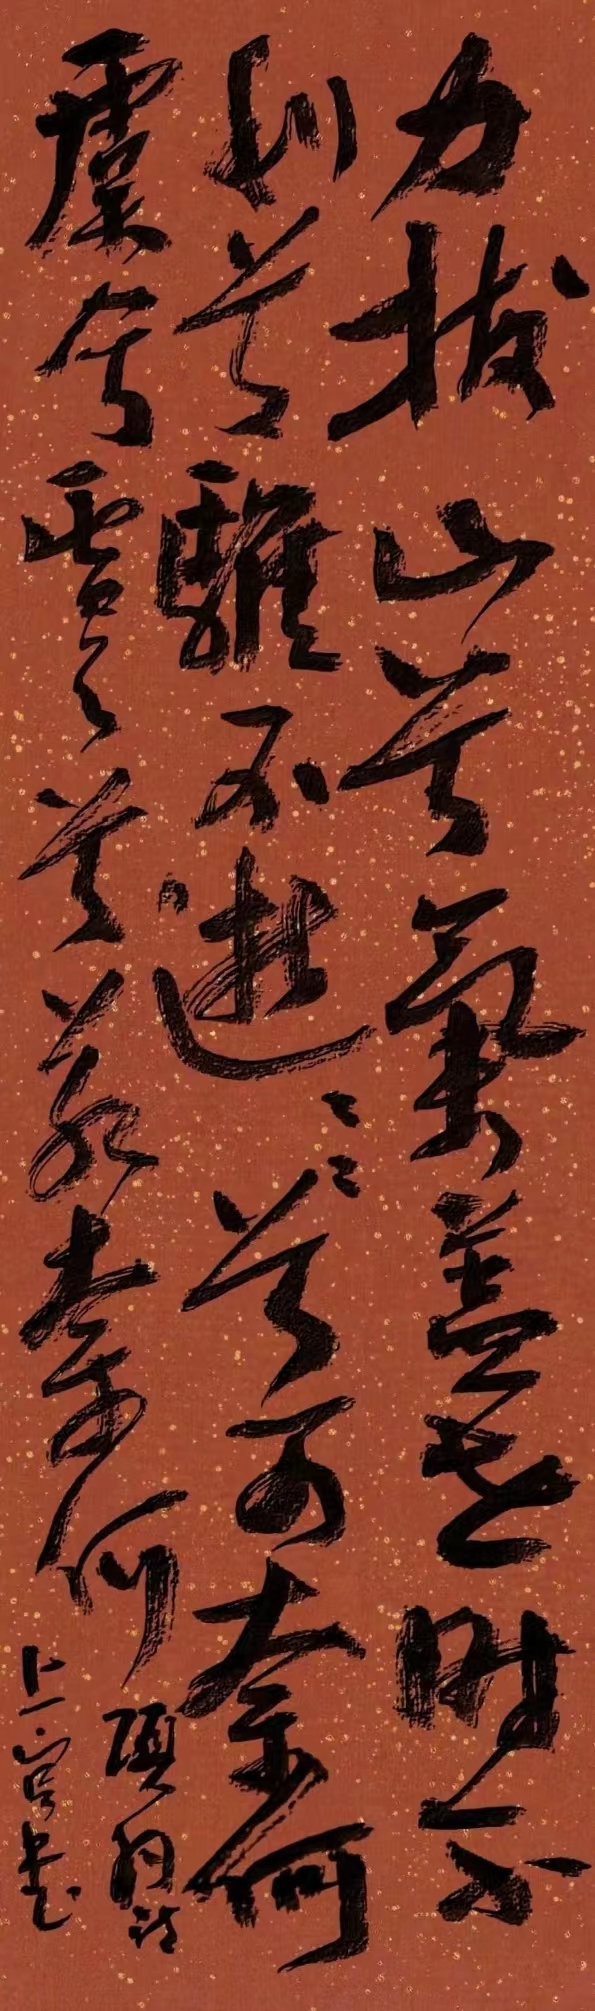 力拔山兮氣蓋世時不
利兮騅不逝騅不逝兮可奈何
虞兮虞兮若奈何
項羽詩
上官書